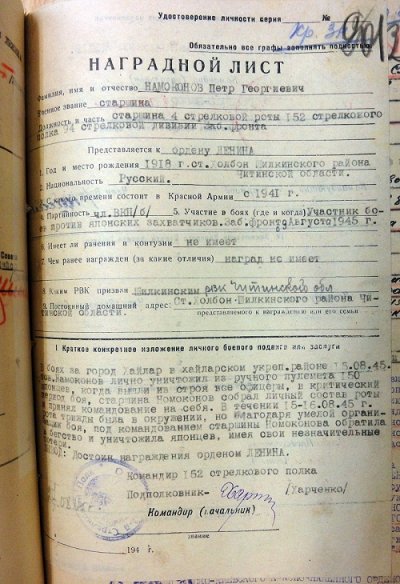 Удостоверение личности серия № 
Кр. Зн
Обязательно все графы заполнять полностью.
НАГРАДНОЙ ЛИСТ
Фамилия, имя и отчество НАМОКОНОВ Петр Георгиевич
Военное звание старшина
Должность и часть старшина 4 стрелковой роты 152 стрелкового
полка 94 стрелковой дивизии Заб.фронта
Представляется к ордену ЛЕНИНА
1. Год и место рождения 1918 г.ст.Холбон Шилкинского района
Читинской области.
2. Национальность Русский.
С какого времени состоит в Красной Армии с 1941 г.
4. Партийность чл.ВКП/б/ 5. Участие в боях (где и когда) Участник бо-
ев против японских захватчиков.Заб.фронт Августо 1945 г.
6. Имеет ли ранения и контузии не имеет
7. Чем ранее награжден (за какие отличия) наград не имеет
8. Каким РВК призван Шилкинским РВК Читинской обл
9. Постоянный домашний адрес: Ст.Холбон-Шилкинского района Чи-
тинской области. представляемого к награждению или его семьи
1 Краткое конкретное изложение личного боевого подвига или заслуги
В боях за город Хайлар в хайларском укреп.районе 15.08.45.
Намоконов лично уничтожил из ручного пулемета 150
японцев, когда вышли из строя все офицеры, в критический
период боя, старшина Номоконов собрал личный состав роты
и принял командование на себя. В течении 15-16.08.45 г.
рота трижды была в окружении, но благодаря умелой органи-
боя, под командованием старшины Номоконова обратила
в бегство и уничтожила японцев, имея свои незначительные
потери.
ВЫВОД: Достоин награждения орденом ЛЕНИНА.
Командир 152 стрелкового полка
Подполковник- /Харченко/
Командир (начальник)
звание
194 г.